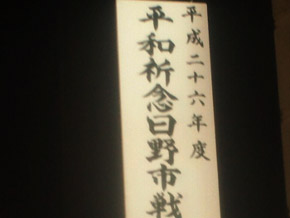 平成二十六年度
平和祈念日野市戦